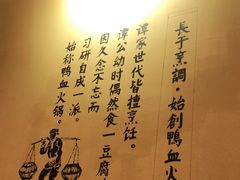 長于烹調·始創鴨血火
谭家世代皆擅烹饪。
谭公幼时偶然食一豆腐
因久念不忘而
习研自成一派。
始称鸭血火锅。